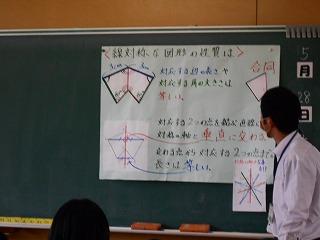 <線対称な図形の性質は>
3cm 3cm
対応する辺の長さや
対応する角の大きさは
等しい。
合同
対応する2つの点を結ぶ直線は
対称の軸と垂直に交わる。
交わる点から対応する2つの点までの
長さは等しい。
5
月
28
日